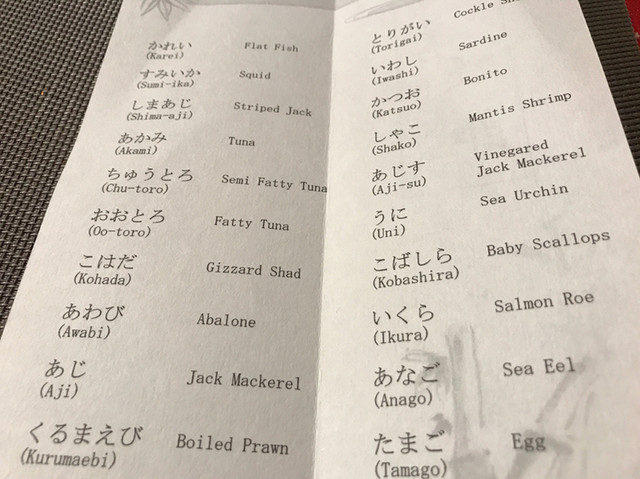 かれい Flat Fish
(Karei)
すみいか Squid
(Sumi-ika)
しまあじ Striped Jack
(Shima-aji)
あかみ Tuna
(Akami)
ちゅうとろ Semi Fatty Tuna
(Chu-toro)
おおとろ Fatty Tuna
(Oo-toro)
こはだ Gizzard Shad
(Kohada)
あわび Abalone
(Awabi)
あじ Jack Mackerel
(Aji)
くるまえび Boiled Prawn
(Kurumaebi)
とりがい Cockle
(Torigai)
いわし Sardine
(Iwashi)
かつお Bonito
(Katsuo)
しゃこ Mantis Shrimp
(Shako)
あじす Vinegared
(Aji-su) Jack Mackerel
うに Sea Urchin
(Uni)
こばしら Baby Scallops
(Kobashira)
いくら Salmon Roe
(Ikura)
あなご Sea Eel
(Anago)
たまご Egg
(Tamago)